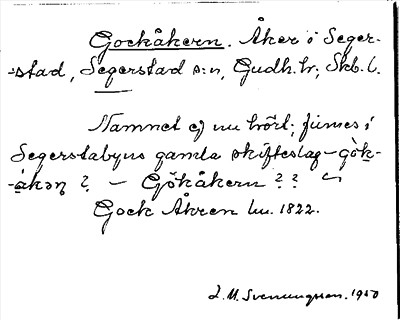 Gockåkern. Åker i Seger-
-stad, Segerstad s:n, Gudh. hr, Skb. l.
Namnet ej nu hört; finnes i
Segerstabyns gamla skifteslag - gök-
-åkəṇ ? - Gökåkern ??
Gock Åkren lm. 1822.
Svenungsson. 1950